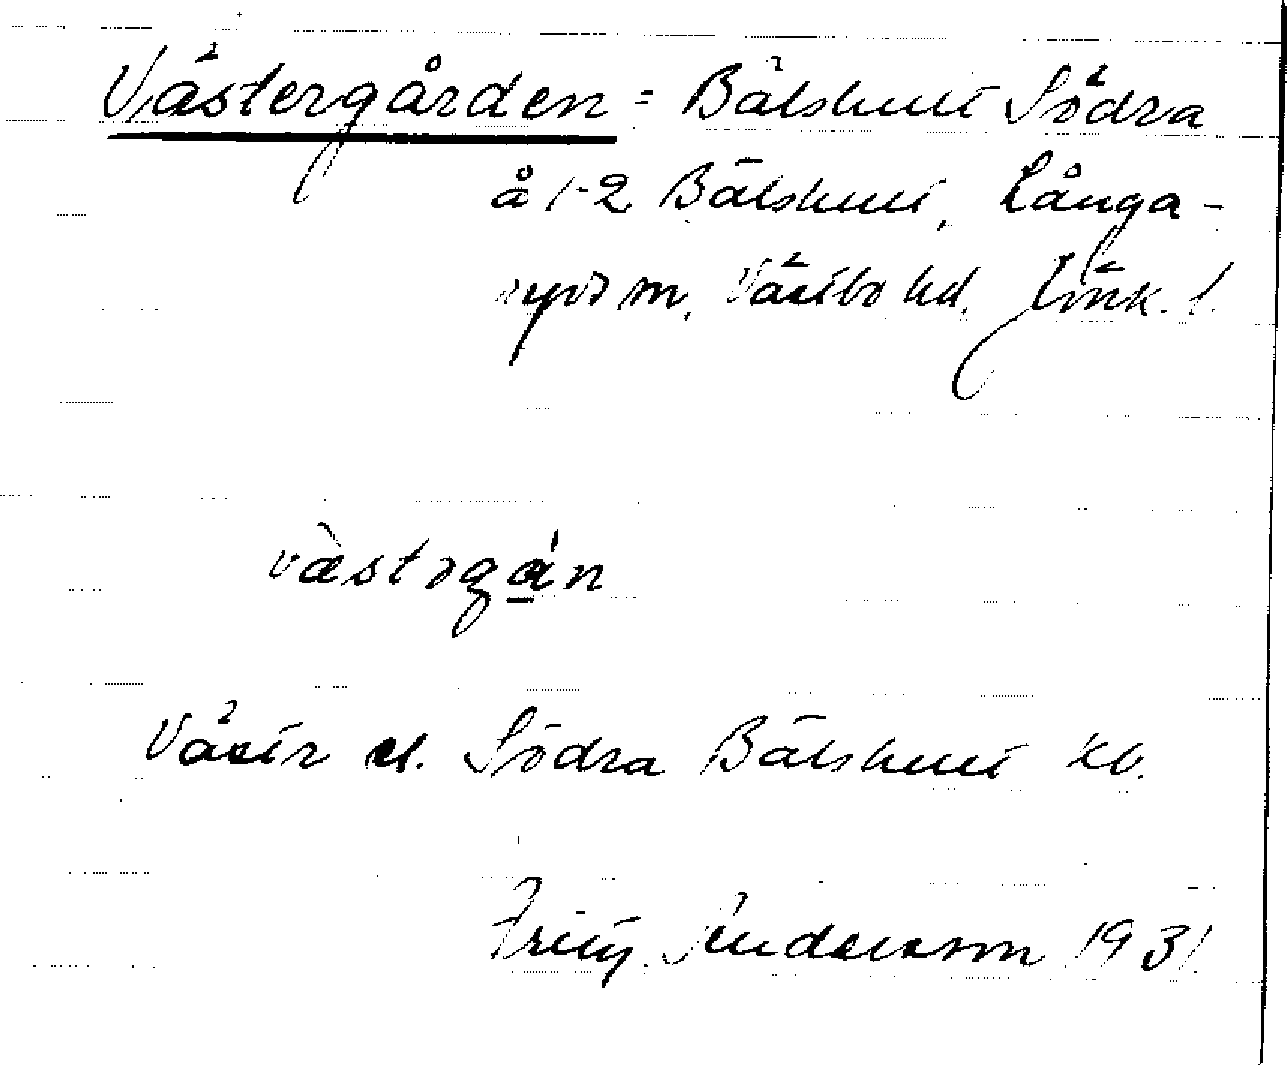 Västergården = Bälshult Södra
å 1-2 Bälshult, Långa-
ryds sn, Västbo hd, Jönk. l.
västərgán
Väster el. Södra Bälshult kb.
Frity. Anderson 1931